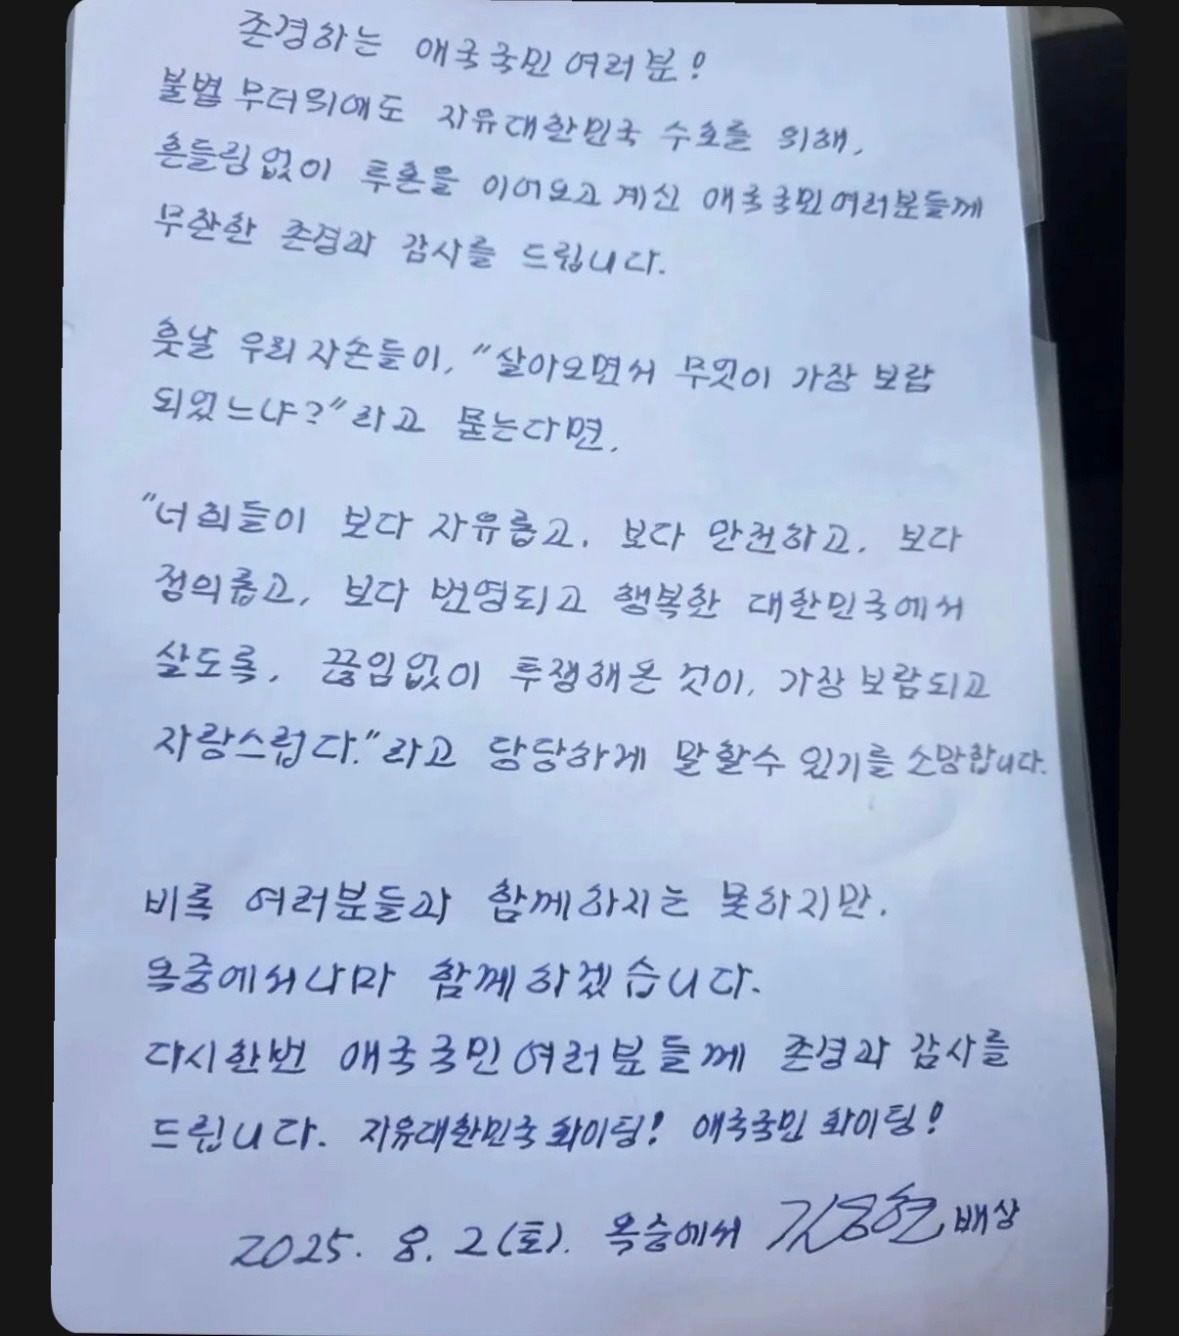 존경하는 애국국민 여러분!
불볕 무더위에도 자유대한민국 수호를 위해,
흔들림없이 투혼을 이어오고 계신 애국국민여러분들께
무한한 존경과 감사를 드립니다.
훗날 우리 자손들이, "살아오면서 무엇이 가장 보람
되었느냐?"라고 묻는다면,
"너희들이 보다 자유롭고, 보다 안전하고, 보다
정의롭고, 보다 번영되고 행복한 대한민국에서
살도록, 끊임없이 투쟁해온 것이, 가장 보람되고
자랑스럽다."라고 당당하게 말할수 있기를 소망합니다.
비록 여러분들과 함께하지는 못하지만,
옥중에서나마 함께하겠습니다.
다시한번 애국국민여러분들께 존경과 감사를
드립니다. 자유대한민국 화이팅! 애국국민 화이팅!
2025. 8. 2(토). 옥중에서 김용현 배상